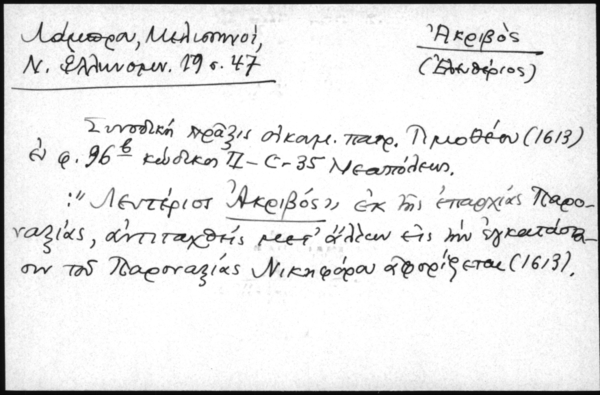 Λάμπρου, Μελισσηνοί,
Ν. Ελληνομν. 19 σ. 47
Ἀκριβός
(Ελευθέριος)
Συνοδική πρᾶξις οἰκουμ. πατρ. Τιμοθέου (1613)
ἐν φ. 96β κώδικος II-C-35 Νεαπόλεως.
:"Λεντέριος Ἀκριβός», ἐκ τῆς ἐπαρχίας Παρο-
ναξίας, ἀντιταχθείς μετ' ἄλλων εἰς τήν ἐγκατάστα-
σιν τοῦ Παροναξίας Νικηφόρου ἀφορίζεται (1613).